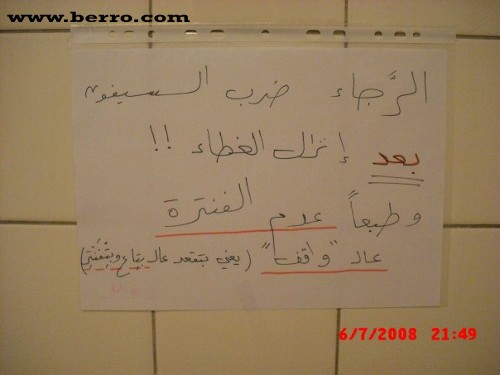 www.berro.com
الرَّجاء ضرب السيفون
بعد إنزال الغطاء !!
وطبعاً عدم الفنترة
عالـ "واقف" (يعني بتقعد عالـ بتاع وبتفنتر)
6/7/2008 21:49